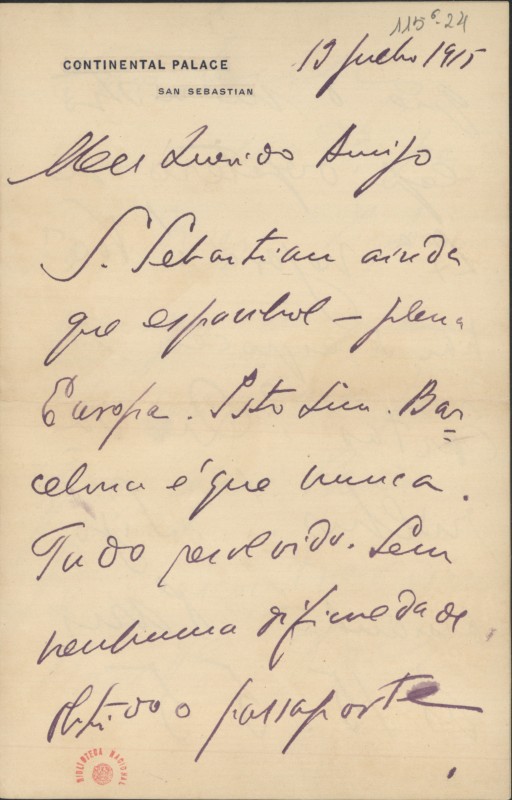 115⁶-24
CONTINENTAL PALACE
SAN SEBASTIAN
13 Julho 1915
Meu Querido Amigo
S. Sebastian ainda
que espanhol — plena
Europa. Isto sim. Bar=
celona é que nunca.
Tudo resolvido. Sem
nenhuma dificuldade
obtido o passaporte
BIBLIOTECA NACIONAL